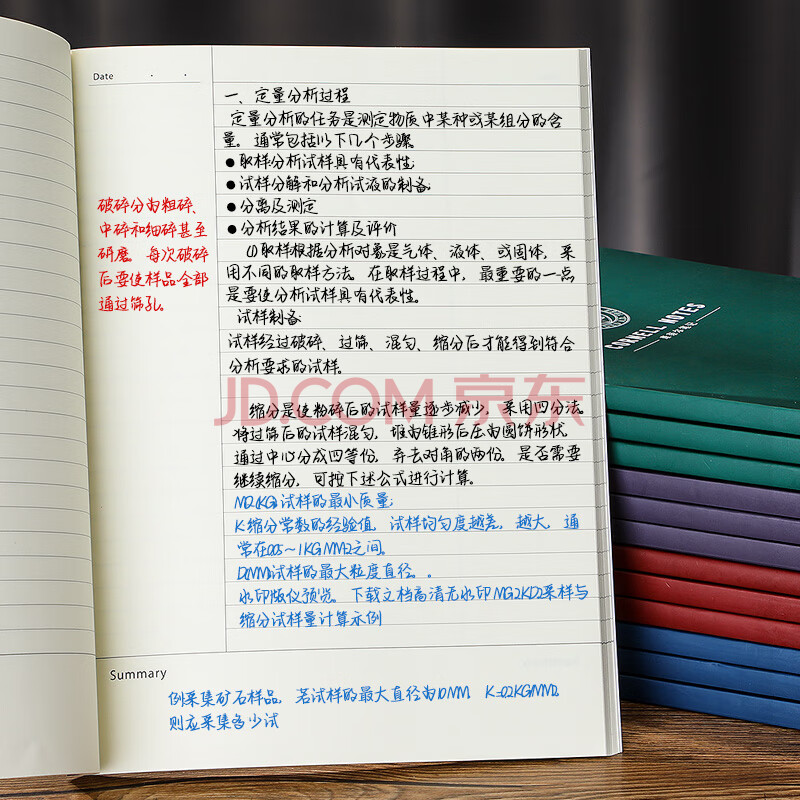 Date
一、定量分析过程
定量分析的任务是测定物质中某种或某组分的含
量。通常包括以下几个步骤
●取样分析试样具有代表性;
●试样分解和分析试液的制备
●分离及测定
●分析结果的计算及评价
(1)取样根据分析对象是气体、液体、或固体，采
用不同的取样方法。在取样过程中，最重要的一点
是要使分析试样具有代表性。
试样制备
试样经过破碎、过筛、混匀、缩分后才能得到符合
分析要求的试样。
缩分是使粉碎后的试样量逐步减少，采用四分法
将过筛后的试样混匀，堆由锥形后压由圆饼形状
通过中心分成四等份，弃去对角的两份。是否需要
继续缩分，可按下述公式进行计算。
MQ(KG)试样的最小质量;
K缩分常数的经验值，试样均匀度越差，越大，通
常在005~1KGMM2之间。
D(MM)试样的最大粒度直径。。
水印版仅预览。下载文档高清无水印MQ2KD2采样与
缩分试样量计算示例
破碎分由粗碎、
中碎和细碎甚至
研磨。每次破碎
后要使样品全部
通过筛孔。
Summary
例采集矿石样品，若试样的最大直径由10MM K=02KGMM2
则应采集多少试
JD.COM 京东
CORNELL NOTES